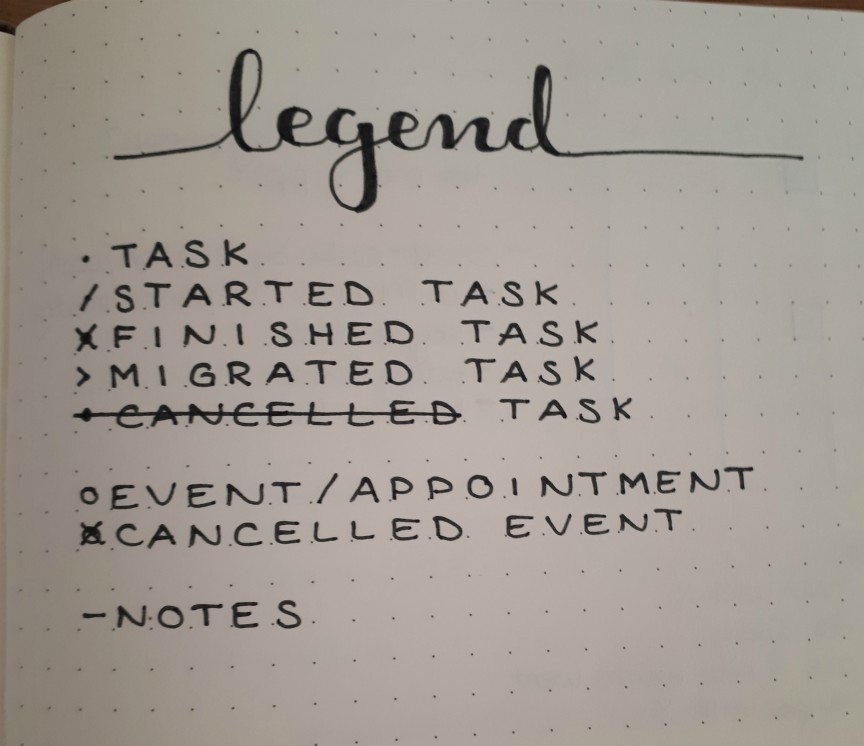 legend
· TASK
/ STARTED TASK
X FINISHED TASK
> MIGRATED TASK
· CANCELLED TASK
o EVENT/APPOINTMENT
X CANCELLED EVENT
- NOTES